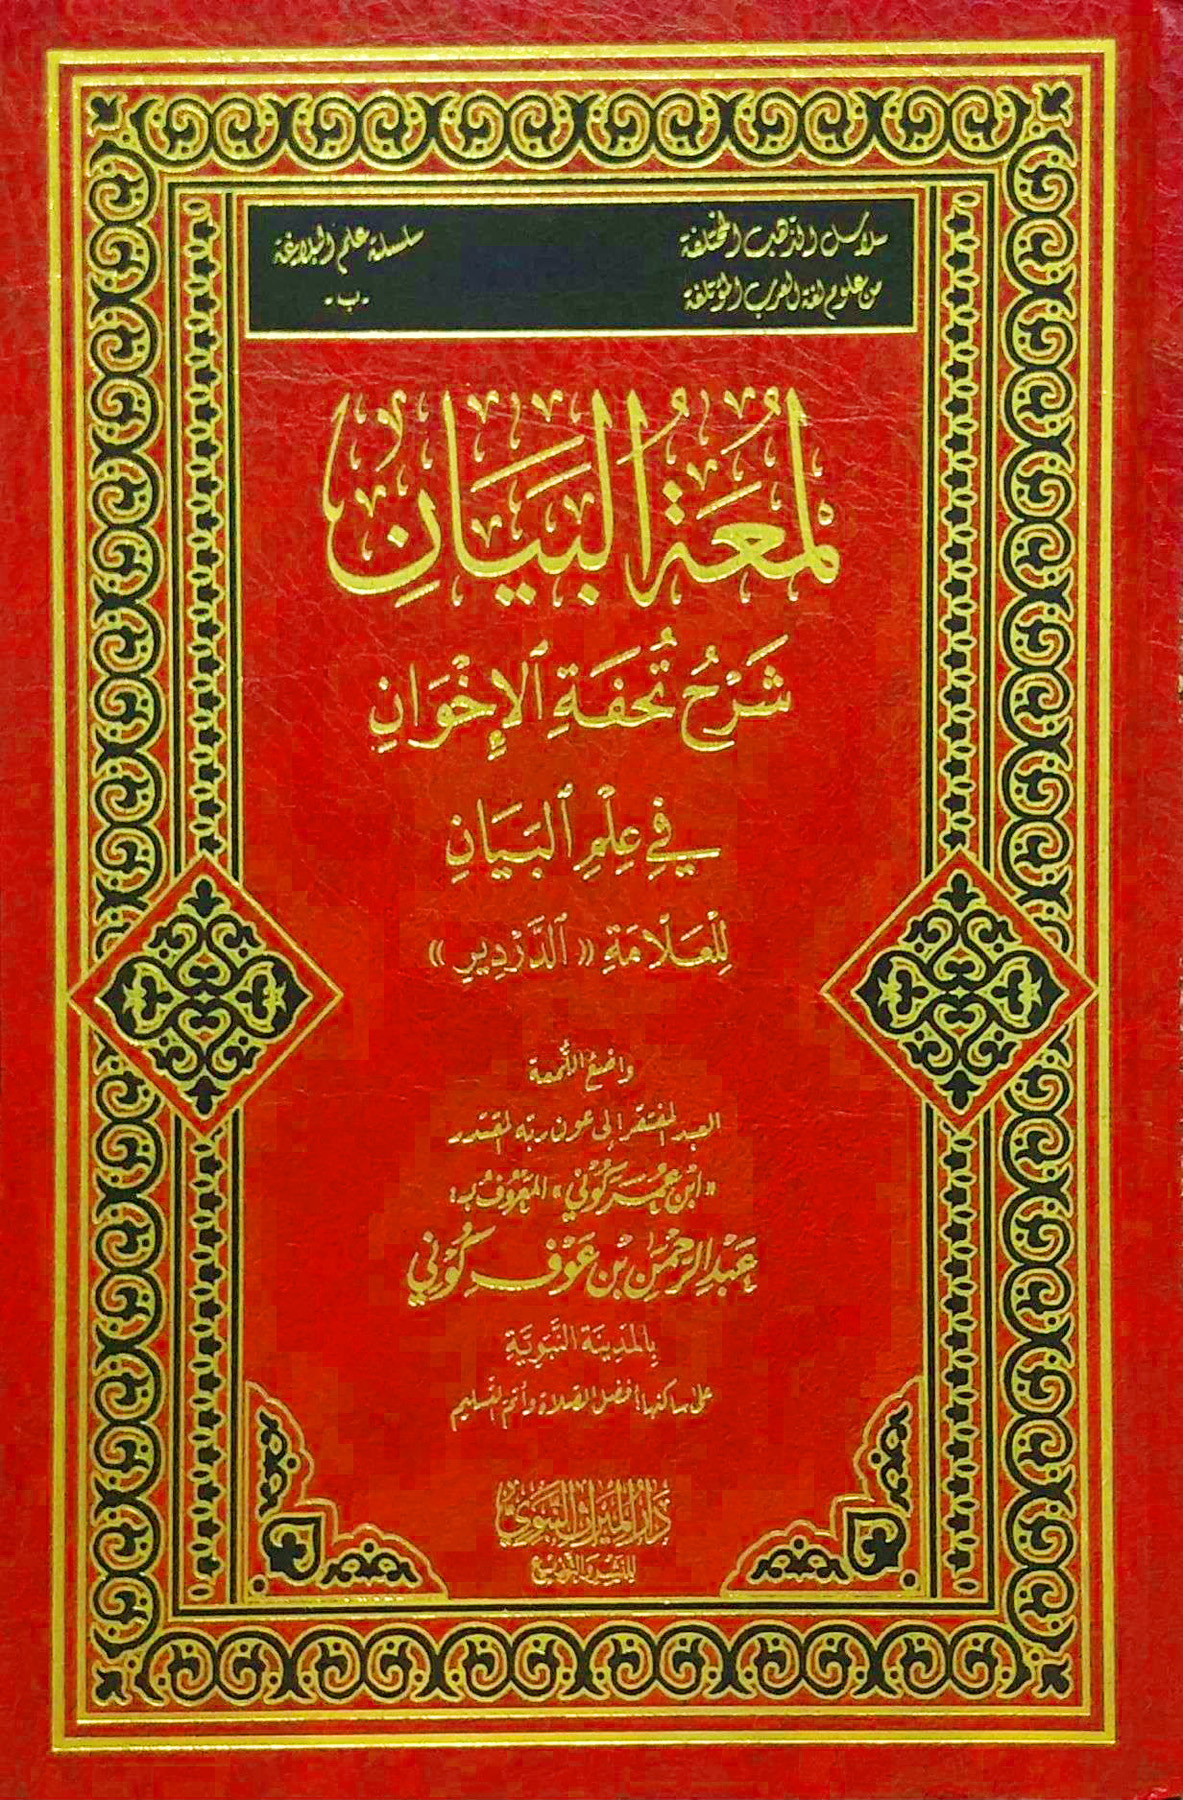 سلاسل الذهب المختلفة
من علوم لغة العرب المؤتلفة
سلسلة علم البلاغة
-ب-
لُمُعَةُ البَيَانِ
شَرْحُ تُحْفَةِ ٱلإِخْوَانِ
فِي عِلْمِ ٱلبَيَانِ
لِلْعَلَّامَةِ «ٱلدَّرْدِيرِ»
واضعُ اللُّمعة
العبد المفتقر إلى عون ربه المقتدر
«ابْن عُمَر كُونِي» المَعْرُوفُ بـ:
عَبْدِ الرَّحْمَنِ بْنِ عَوْفٍ كُونِي
بِالمَدِينَة النَّبَوِيَّةِ
على ساكنها أفضل الصلاة وأتم التسليم
دَارُ المِيرَاثِ النَّبَوِيِّ
لِلنَّشْرِ وَالتَّوْزِيعِ